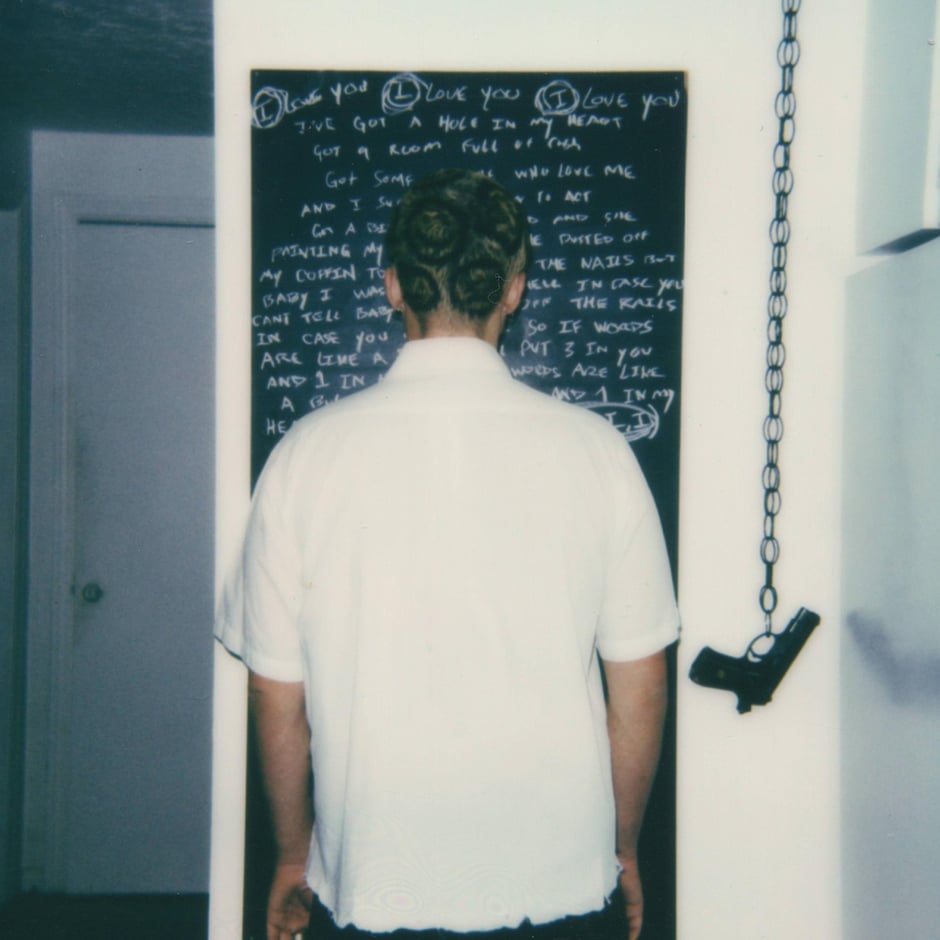 I LOVE YOU I LOVE YOU I LOVE YOU
I'VE GOT A HOLE IN MY HEART
GOT A ROOM FULL OF
GOT SOME WHO LOVE ME
AND I TO ACT
GOT A AND SHE
PAINTING MY DUSTED OFF
MY COFFIN TO THE NAILS BUT
BABY I WAS IN CASE YOU
CANT TELL BABY OFF THE RAILS
IN CASE YOU SO IF WORDS
ARE LIKE A PUT 3 IN YOU
AND 1 IN WORDS ARE LIKE
A AND 1 IN MY
I, I